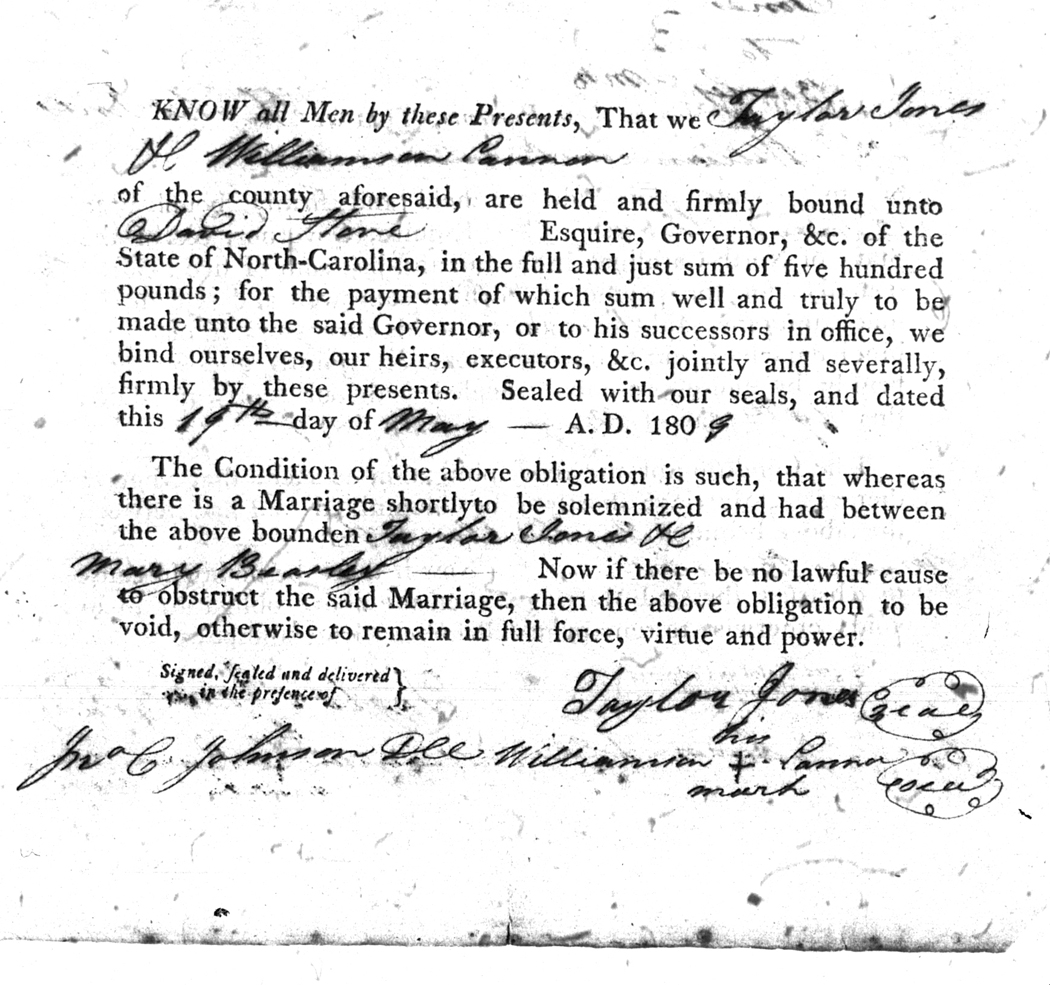 KNOW all Men by these Presents, That we Taylor Jones
& Williamson Cannon
of the county aforesaid, are held and firmly bound unto
David Stone Esquire, Governor, &c. of the
State of North-Carolina, in the full and just sum of five hundred
pounds; for the payment of which sum well and truly to be
made unto the said Governor, or to his successors in office, we
bind ourselves, our heirs, executors, &c. jointly and severally,
firmly by these presents. Sealed with our seals, and dated
this 19th day of May — A. D. 1809
The Condition of the above obligation is such, that whereas
there is a Marriage shortlyto be solemnized and had between
the above bounden Taylor Jones &
Mary Beasley — Now if there be no lawful cause
to obstruct the said Marriage, then the above obligation to be
void, otherwise to remain in full force, virtue and power.
Signed, sealed and delivered }
in the presence of
Taylor Jones seal
his
Jno C. Johnson Williamson + Cannon seal
mark